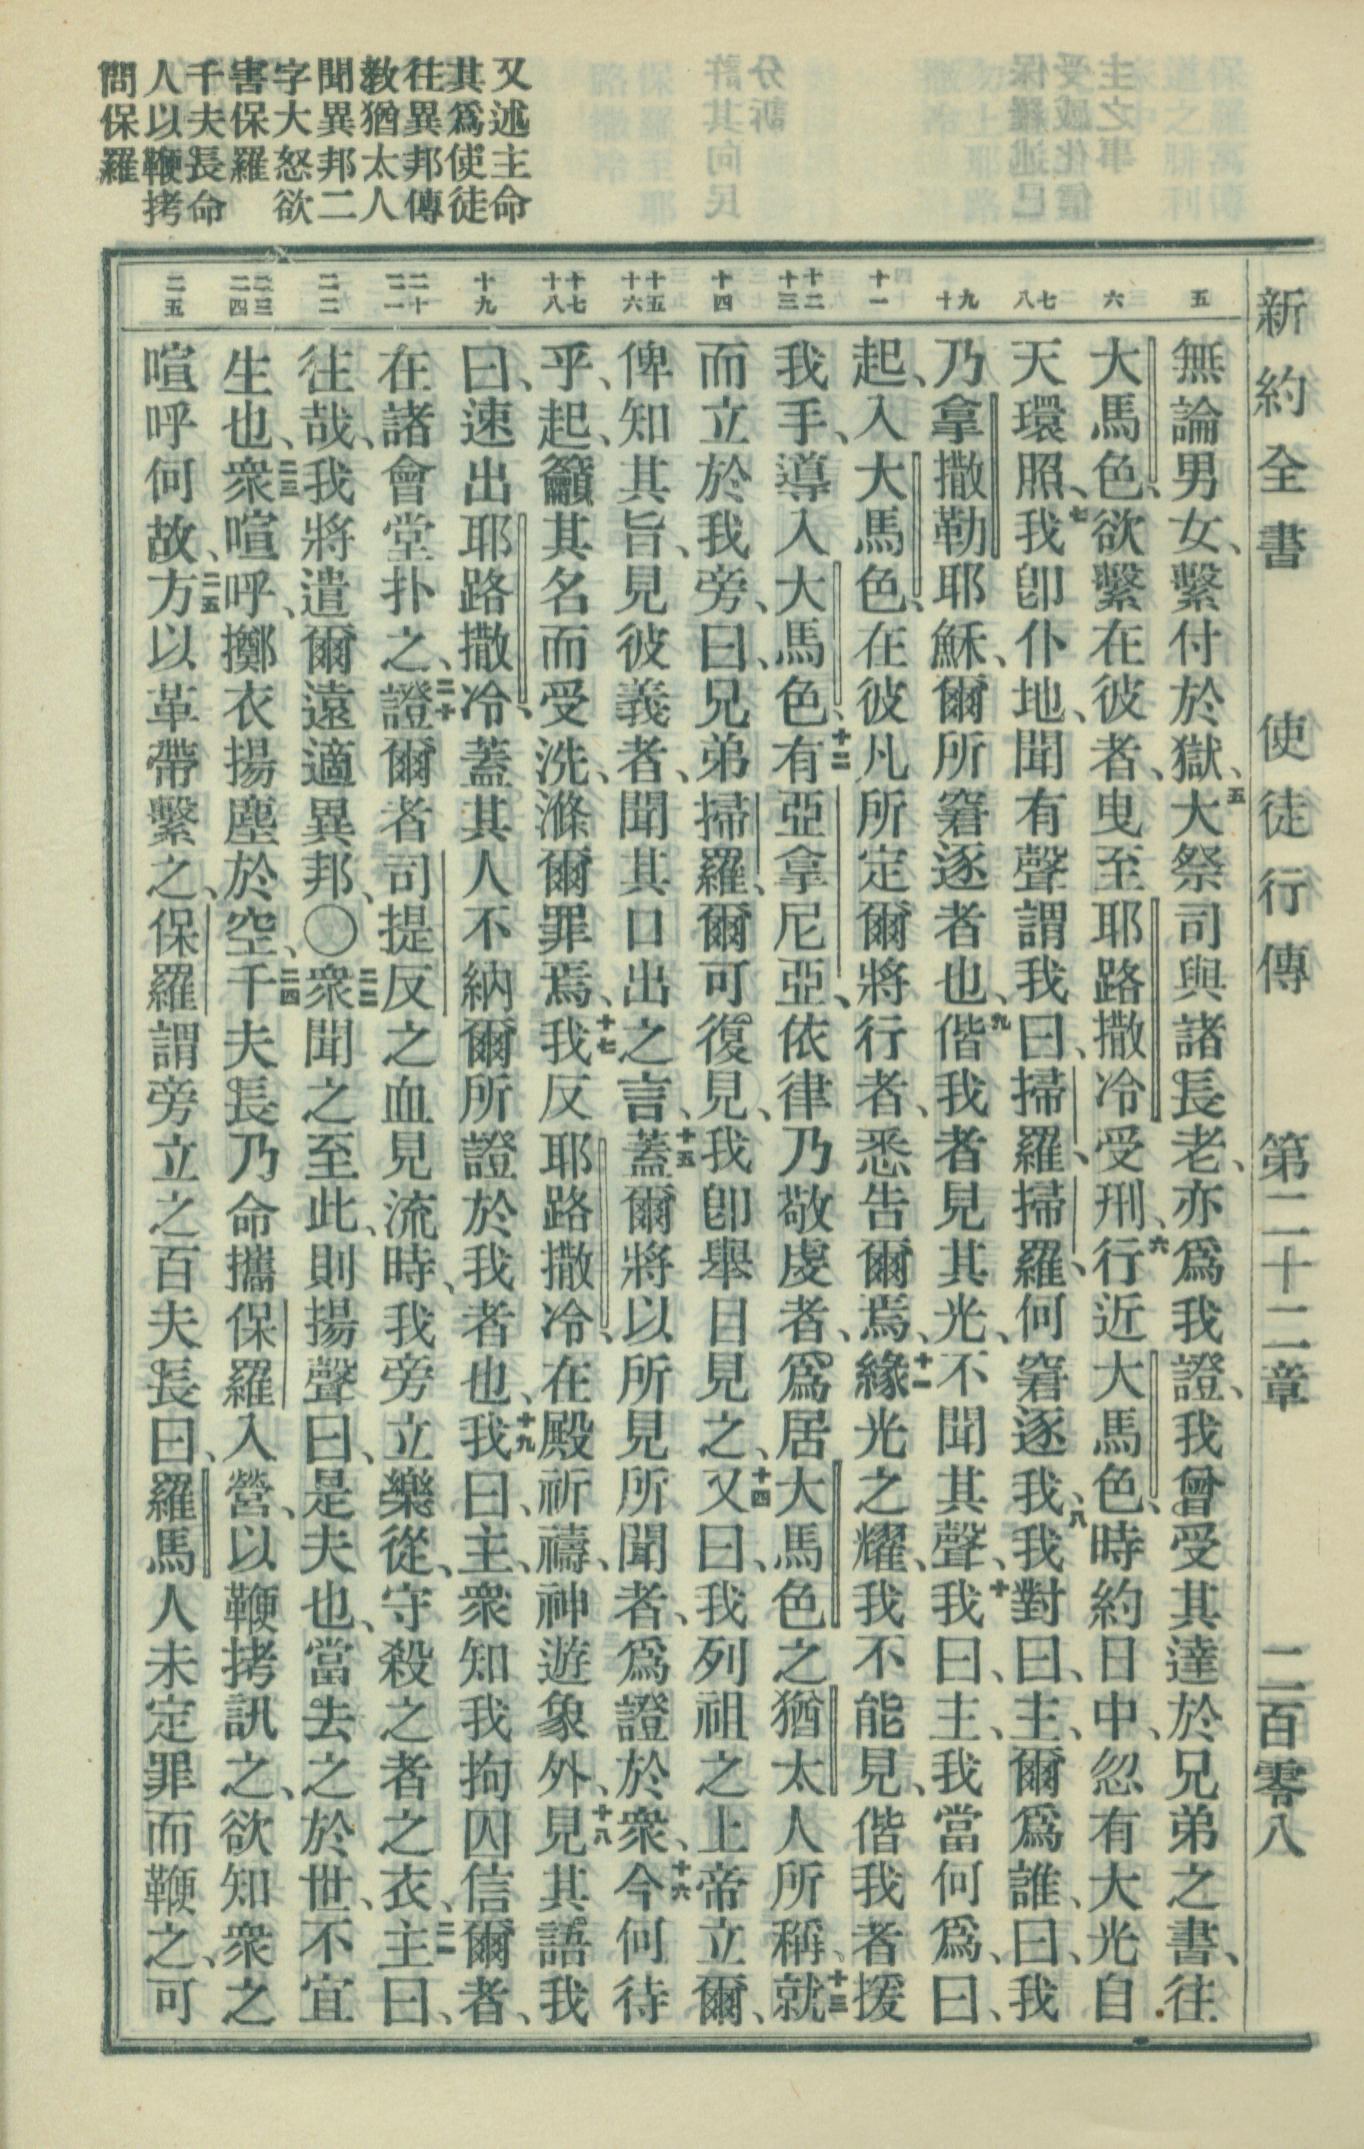 新約全書　使徒行傳　第二十二章　二百零八
又述主命
其爲使徒
往異邦傳
敎猶太人
聞異邦二
字大怒欲
害保羅
千夫長命
人以鞭拷
問保羅
五
六
七 八
九 十
十一
十二 十三
十四
十五 十六
十七 十八
十九
二十 二一
二二
二三 二四
二五
無論男女、繫付於獄、五大祭司與諸長老、亦爲我證、我曾受其達於兄弟之書、往
大馬色、欲繫在彼者、曳至耶路撒冷受刑、六行近大馬色、時約日中、忽有大光自
天環照、七我卽仆地、聞有聲謂我曰、掃羅、掃羅、何窘逐我、八我對曰、主、爾爲誰、曰、我
乃拿撒勒耶穌、爾所窘逐者也、九偕我者見其光、不聞其聲、十我曰、主、我當何爲、曰、
起、入大馬色、在彼凡所定爾將行者、悉告爾焉、十一緣光之耀、我不能見、偕我者援
我手、導入大馬色、十二有亞拿尼亞、依律乃敬虔者、爲居大馬色之猶太人所稱、十三就
而立於我旁、曰、兄弟掃羅、爾可復見、我卽舉目見之、十四又曰、我列祖之上帝立爾、
俾知其旨、見彼義者、聞其口出之言、十五蓋爾將以所見所聞者、爲證於衆、十六今何待
乎、起、籲其名而受洗、滌爾罪焉、十七我反耶路撒冷、在殿祈禱、神遊象外、十八見其語我
曰、速出耶路撒冷、蓋其人不納爾所證於我者也、十九我曰、主、衆知我拘囚信爾者、
在諸會堂扑之、二十證爾者司提反之血見流時、我旁立樂從、守殺之者之衣、二一主曰、
往哉、我將遣爾遠適異邦、〇二二衆聞之至此、則揚聲曰、是夫也、當去之於世、不宜
生也、二三衆喧呼、擲衣揚塵於空、二四千夫長乃命攜保羅入營、以鞭拷訊之、欲知衆之
喧呼何故、二五方以革帶繫之、保羅謂旁立之百夫長曰、羅馬人未定罪而鞭之、可